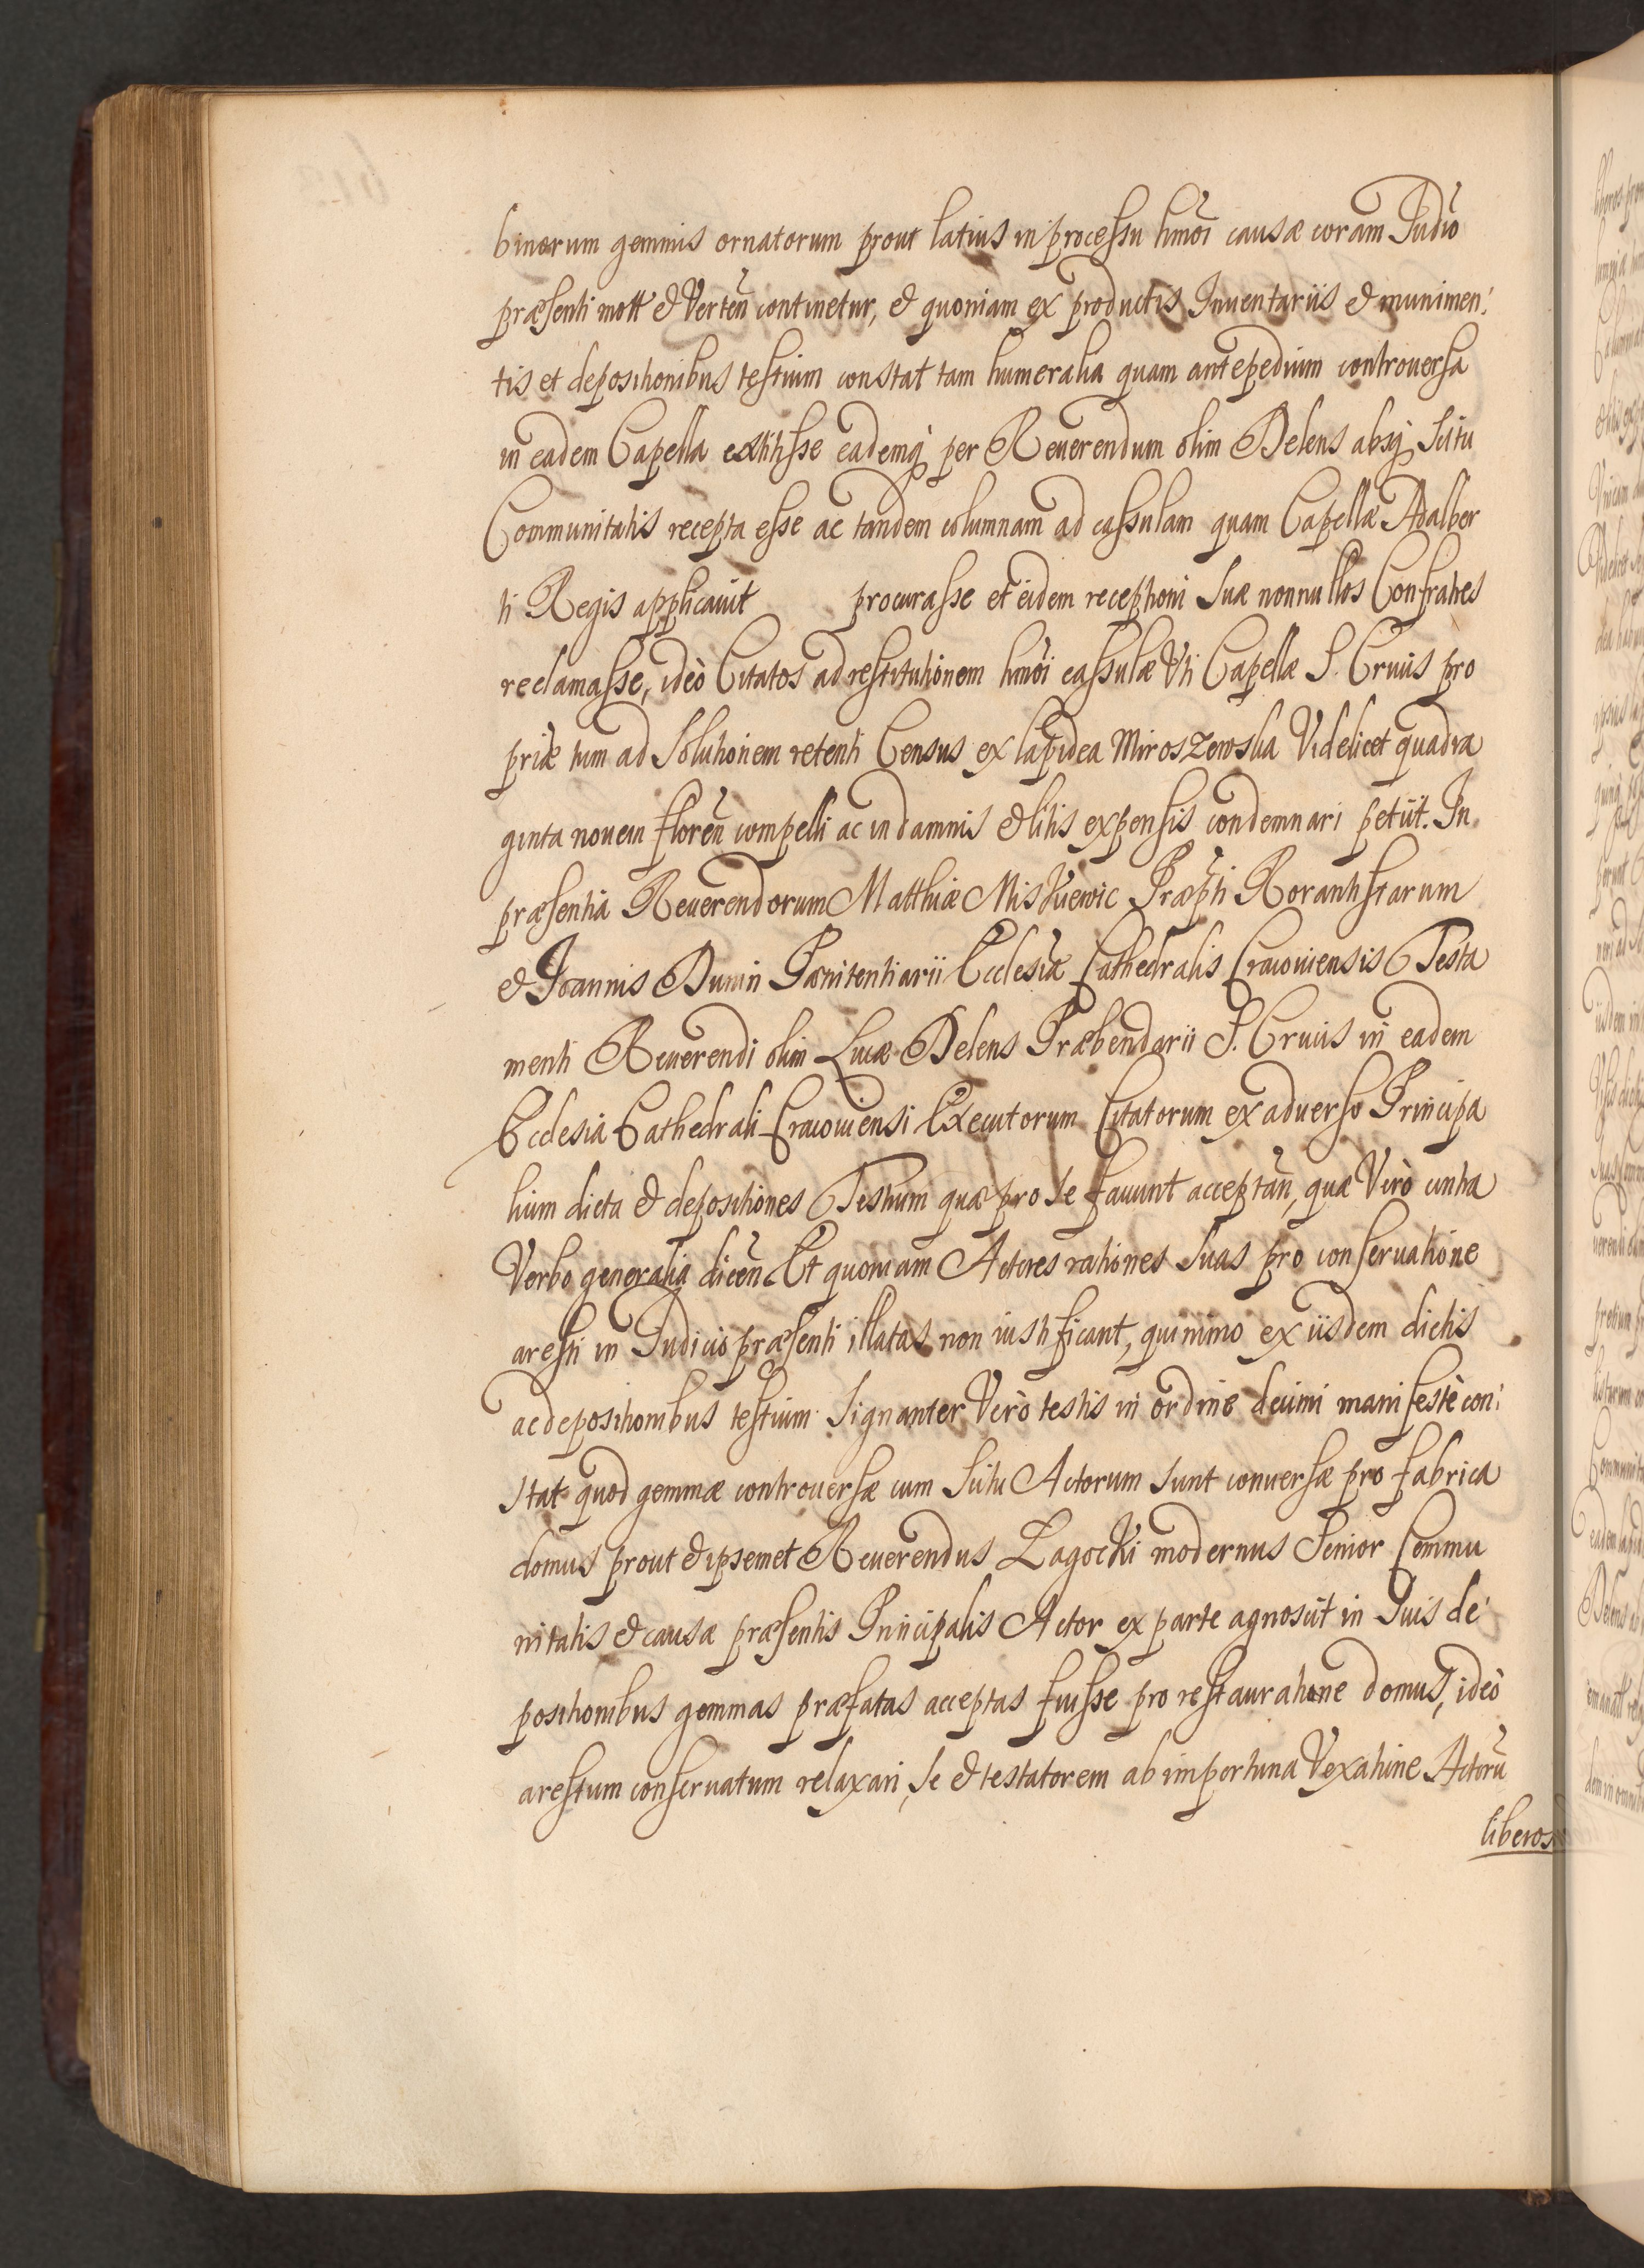 binorum gemmis ornatorum prout latius in processu hmōi causæ coram Judiō
præsenti mott̃ & Verteñ continetur, & quoniam ex productis Inuentariis & munimen:
tis et depositionibus testium constat tam humeralia quam antepedium controuersa
in eadem Capella extitisse eademq̀ per Reuerendum olim Delens absq̀ scitu
Communitatis recepta esse ac tandem columnam ad cassulam quam Capellæ Adalber
ti Regis applicauit procurasse et eidem receptioni suæ nonnullos Confratres
reclamasse, ideò Citatos ad restitutionem hmōi cassulæ Vti Capellæ S. Crucis pro
priæ tum ad solutionem retenti Census ex lapidea Miroszewska Videlicet quadra
ginta nouem floreñ compelli ac in damnis & litis expensis condemnari petiit. In
præsentia Reuerendorum Matthiæ Miskiewic Præpti Rorantistarum
& Joannis Dunin Pænitentiarii Ecclesiæ Cathedralis Cracouiensis Testa
menti Reuerendi olim Lucæ Delens Præbendarii S. Crucis in eadem
Ecclesia Cathedrali Cracouiensi Executorum Citatorum ex aduerso Principa
lium dicta & depositiones Testium quæ pro se faciunt acceptañ, quæ Verò contra
Verbo generalia diceñ Et quoniam Actores rationes suas pro conseruatione
aresti in Judicio præsenti illatas non iustificant, quinimo ex iisdem dictis
ac depositionibus testium signanter Verò testis in ordine decimi manifestè con:
stat quod gemmæ controuersæ cum scitu Actorum sunt conuersæ pro fabrica
domus prout & ipsemet Reuerendus Łagocki modernus Senior Commu
nitatis & causæ præsentis Principalis Actor ex parte agnoscit in suis de:
positionibus gemmas præfatas acceptas fuisse pro restauratione domus, ideò
arestum conseruatum relaxari, se & testatorem ab importuna Vexatione Actorū
liberos